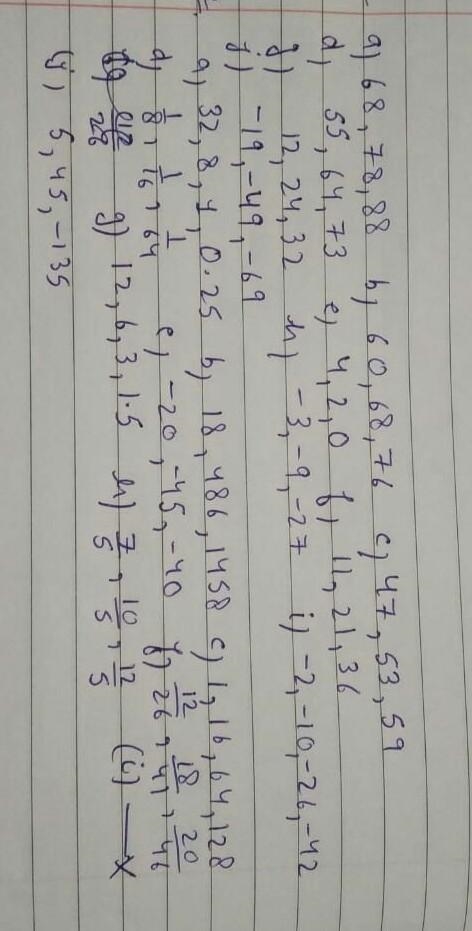 a) 68, 78, 88 b) 60, 68, 76 c) 47, 53, 59
d) 55, 64, 73 e) 4, 2, 0 f) 11, 21, 36
g) 12, 24, 32 h) -3, -9, -27 i) -2, -10, -26, -42
j) -19, -49, -69
a) 32, 8, 1, 0.25 b) 18, 486, 1458 c) 1, 16, 64, 128
d) 1/8, 1/16, 1/64 e) -20, -45, -40 f) 12/26, 18/41, 20/46
26 g) 12, 6, 3, 1.5 h) 7/5, 10/5, 12/5 (i) — x
(j) 5, 45, -135